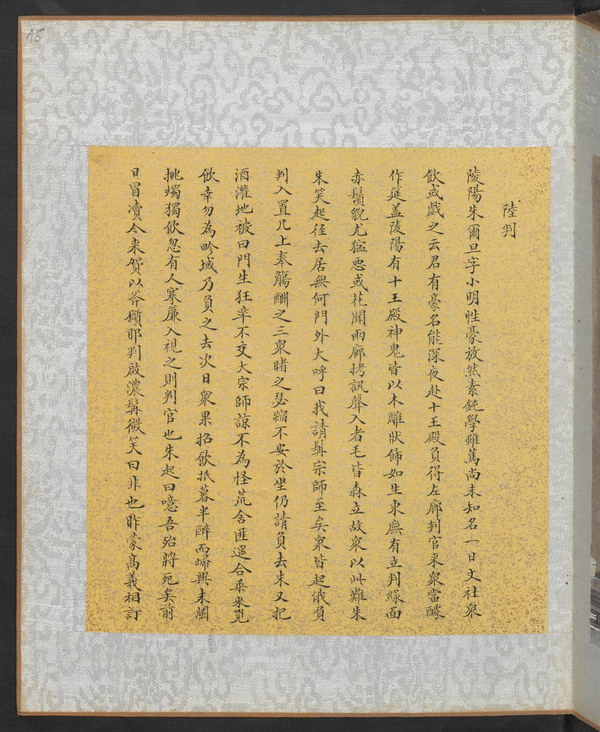 15
陸判
陵陽朱爾旦字小明性豪放然素鈍學雖篤尚未知名一日文社衆
飲或戲之云君有豪名能深夜赴十王殿負得左廊判官來衆當醵
作筵蓋陵陽有十王殿神鬼皆以木雕狀飾如生東廡有立判綠面
赤鬚貌尤猛悪或花聞兩廊拷訊聲入者毛皆森立故衆以此難朱
朱笑起徑去居無何門外大呼曰我請髯宗師至矣衆皆起俄負
判入置几上奉觴酬之三衆睹之瑟縮不安於坐仍請負去朱又把
酒灌地祝曰門生狂率不文大宗師諒不為怪荒舍匪遙合乘來覓
飲幸勿為畛域乃負之去次日衆果招飲抵暮半醉而歸興未闌
挑燭獨飲忽有人搴簾入視之則判官也朱起曰噫吾殆將死矣前
日冒瀆今来賀以斧鑕耶判啟濃髯微笑曰非也昨蒙高義相訂